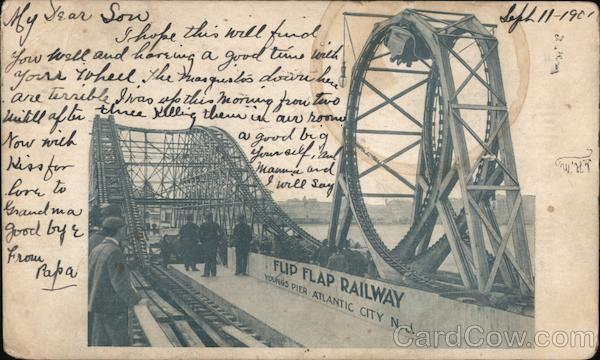 My Dear Son
Sept 11 - 190
I hope this will find
You well and haveing a good time with
Your Wheel. The Musquitos down here
are terrible I was up this Morning from two
untill after three Killing them in our room
Now with
Kiss for
love to
Grandma
good bye
From
Papa
a good big
Yourself, and
Mamma and
I will say
FLIP FLAP RAILWAY
YOUNG'S PIER ATLANTIC CITY N.J.
CardCow.com